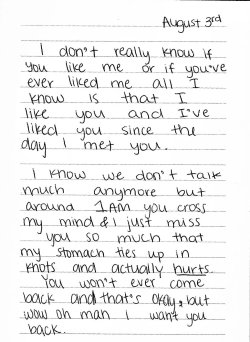 August 3rd
I don't really know if
you like me or if you've
ever liked me all I
know is that I
like you and I've
liked you since the
day I met you.
I know we don't talk
much anymore but
around 1AM you cross
my mind & I just miss
you so much that
my stomach ties up in
knots and actually hurts.
You won't ever come
back and that's okay, but
wow oh man I want you
back.